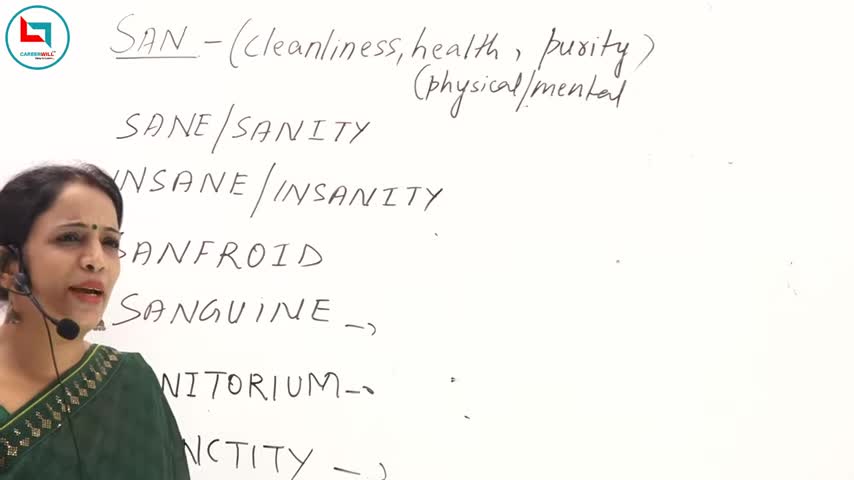 CAREERWILL
SAN - (cleanliness, health, purity)
(physical/mental
SANE/SANITY
INSANE/INSANITY
ANFROID
SANGUINE
NITORIUM
NCTITY